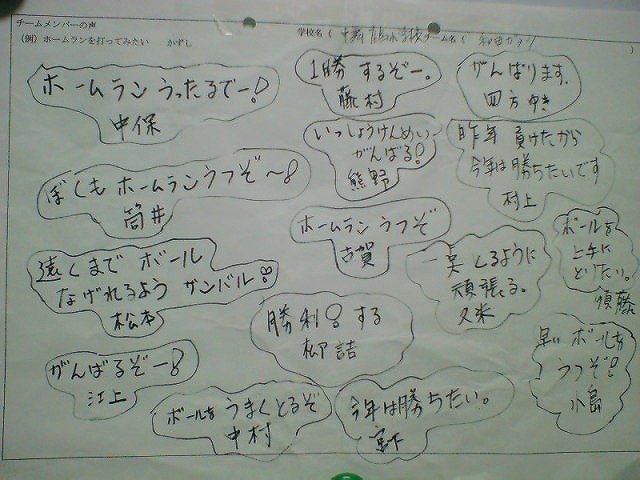 チームメンバーの声
(例) ホームランを打ってみたい かずし
学校名 ( 小学校 チーム名 ( )
ホームランうったるでー!
中保
1勝するぞー。
藤村
がんばります。
四方 ゆき
いっしょうけんめい
がんばる!
熊野
昨年 負けたから
今年は勝ちたいです
村上
ぼくもホームランうつぞ〜!
筒井
ホームランうつぞ
古賀
ボールを
上手に
とりたい。
須藤
遠くまで ボール
なげれるよう ガンバル!
松本
とるように
頑張る。
久米
勝利!する
柳詰
早い ボールを
うつぞ!
小島
がんばるぞー!
江上
ボールを うまくとるぞ
中村
今年は勝ちたい。
宮下